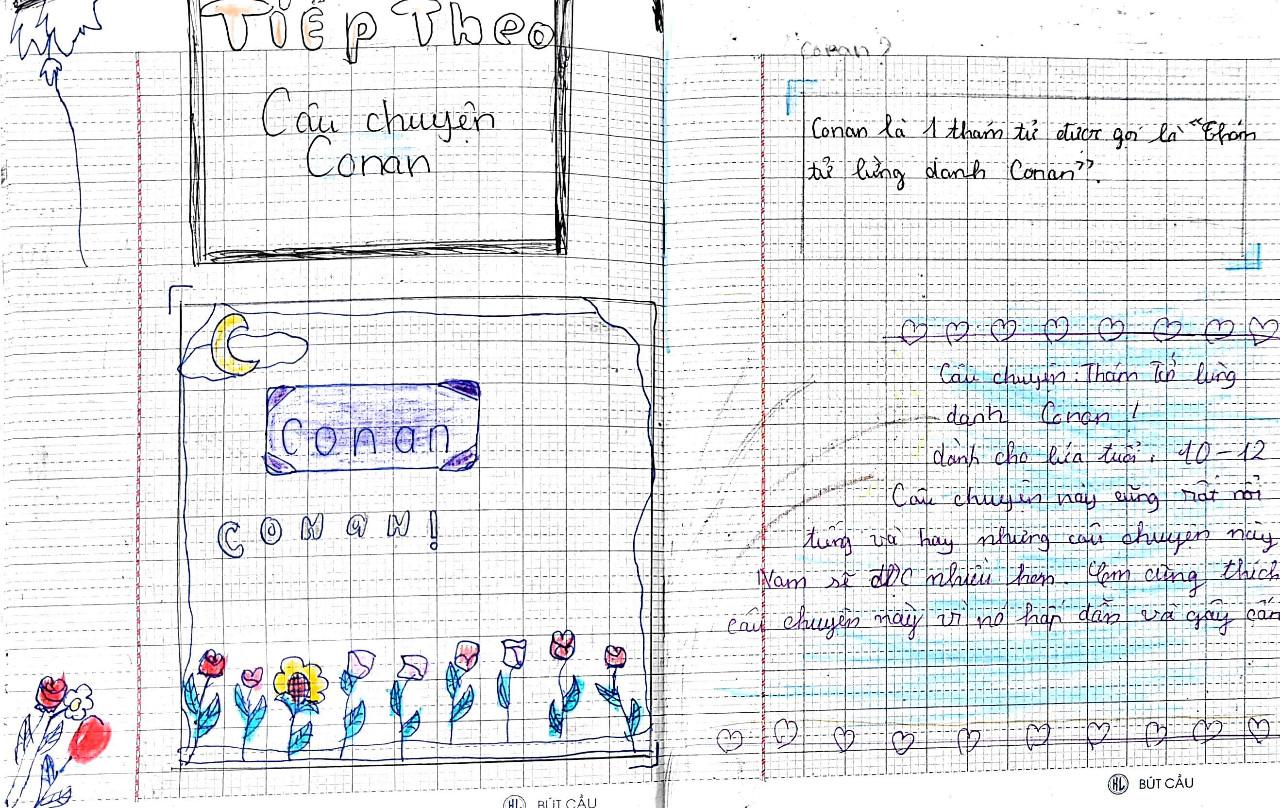 Tiếp Theo
Câu chuyện
Conan
Conan
CONAN!
BÚT CẦU
Conan?
Conan là 1 thám tử được gọi là "Thám
tử lừng danh Conan".
Câu chuyện: Thám tử lừng
danh Conan!
dành cho lứa tuổi: 10-12
Câu chuyện này cũng rất nổi
tiếng và hay nhưng câu chuyện này
Nam sẽ đọc nhiều hơn. Em cũng thích
câu chuyện này vì nó hấp dẫn và gây cấn
HL BÚT CẦU